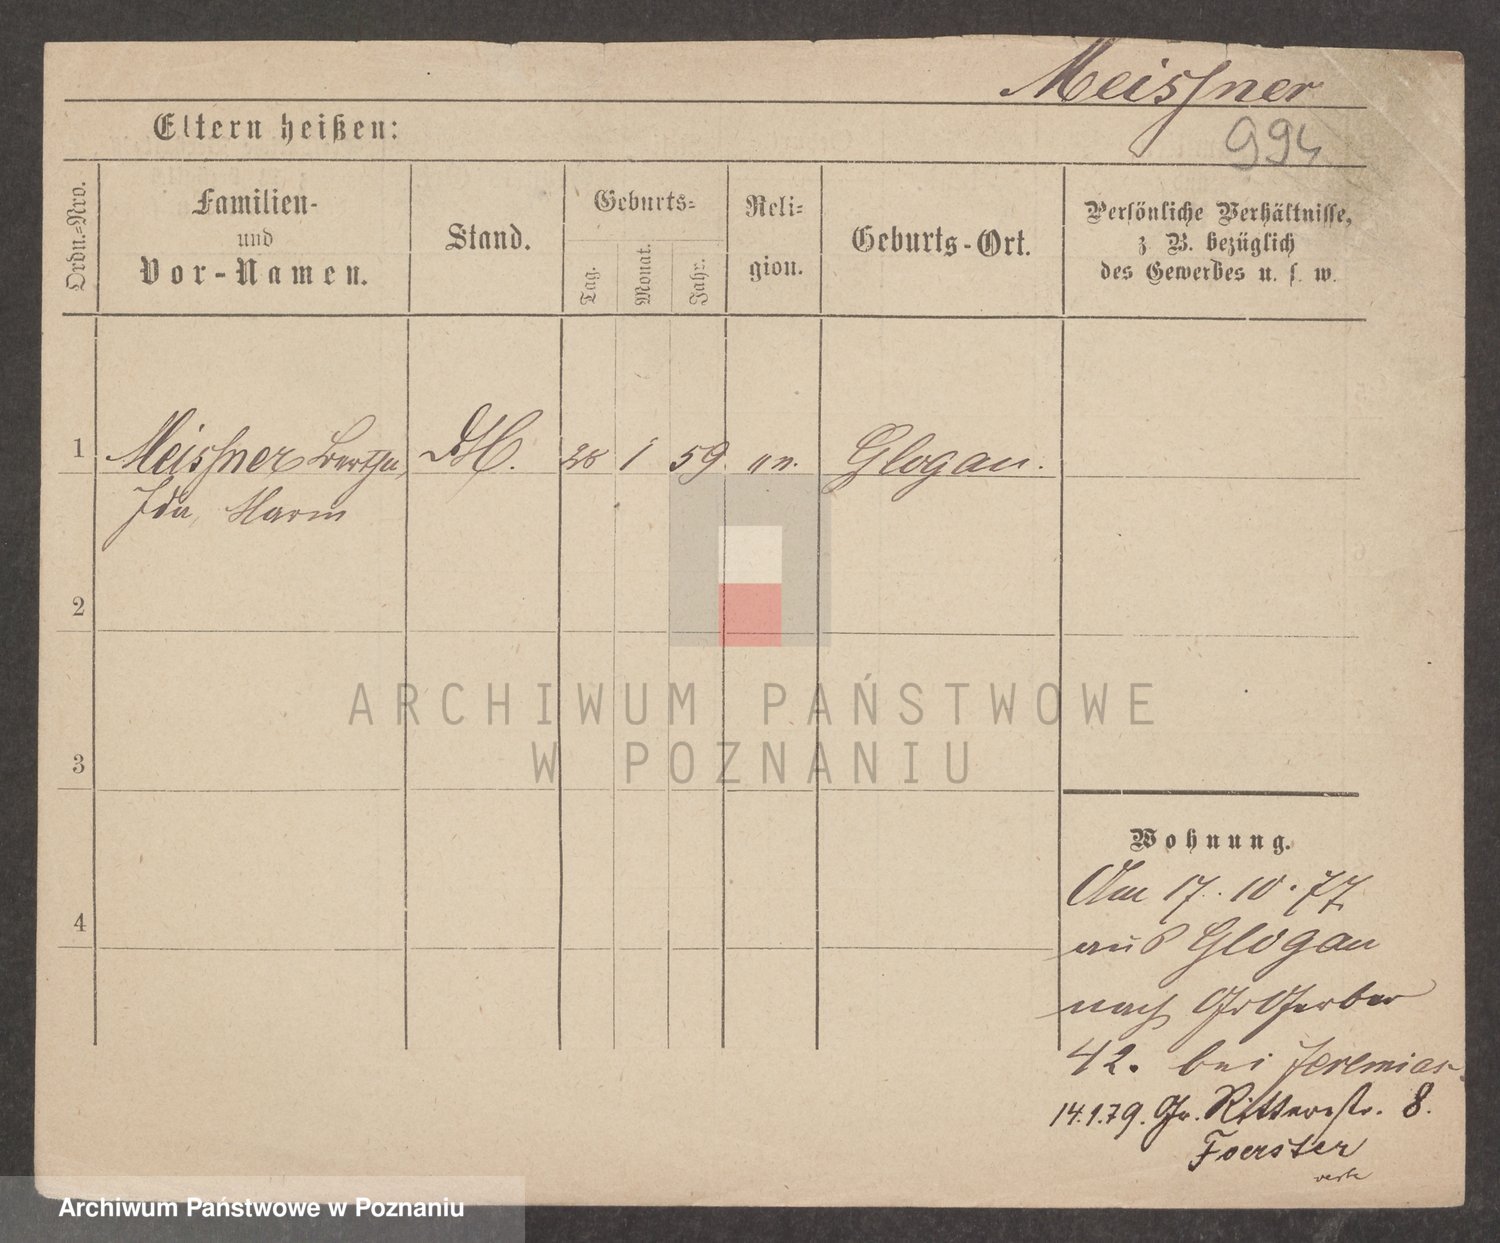 Meissner
994
Eltern heißen:
Ordn.-Nro.
Familien-
und
Vor-Namen.
Stand.
Geburts-
Tag.
Monat.
Jahr.
Reli-
gion.
Geburts-Ort.
Persönliche Verhältnisse,
z. B. bezüglich
des Gewerbes u. s. w.
1
Meissner Bertha,
Ida,
1
59.
Glogau.
2
3
4
Wohnung.
Am 17.10.77
aus Glogau
nach Gr Gerber
42. bei Jeremias.
14.1.79. Gr. Ritterstr. 8.
Foerster
ARCHIWUM PAŃSTWOWE
W POZNANIU
Archiwum Państwowe w Poznaniu